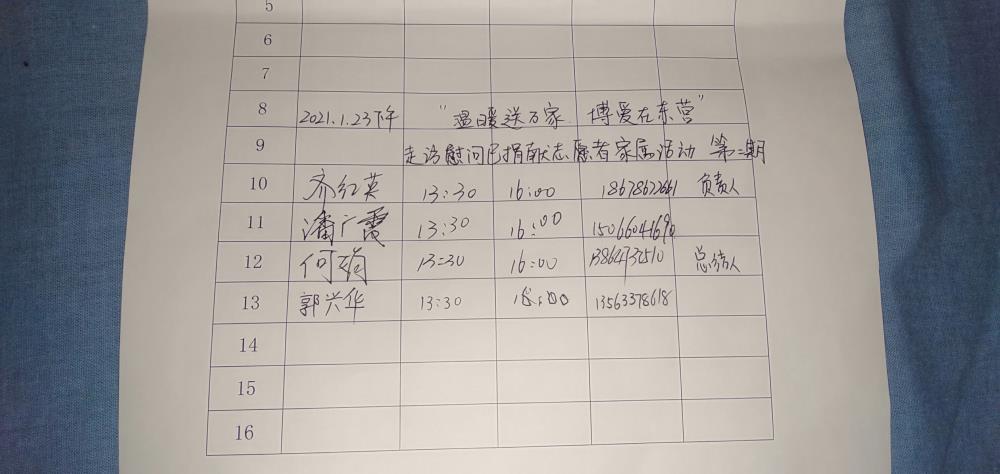 5
6
7
8 2021.1.23下午 “温暖送万家 博爱在东营”
9 走访慰问已捐献志愿者家属活动 第二期
10 齐红英 13:30 16:00 18678622661 负责人
11 潘广霞 13:30 16:00 15066041690
12 何 13:30 16:00 13864732510 总结人
13 郭兴华 13:30 16:00 13563378618
14
15
16